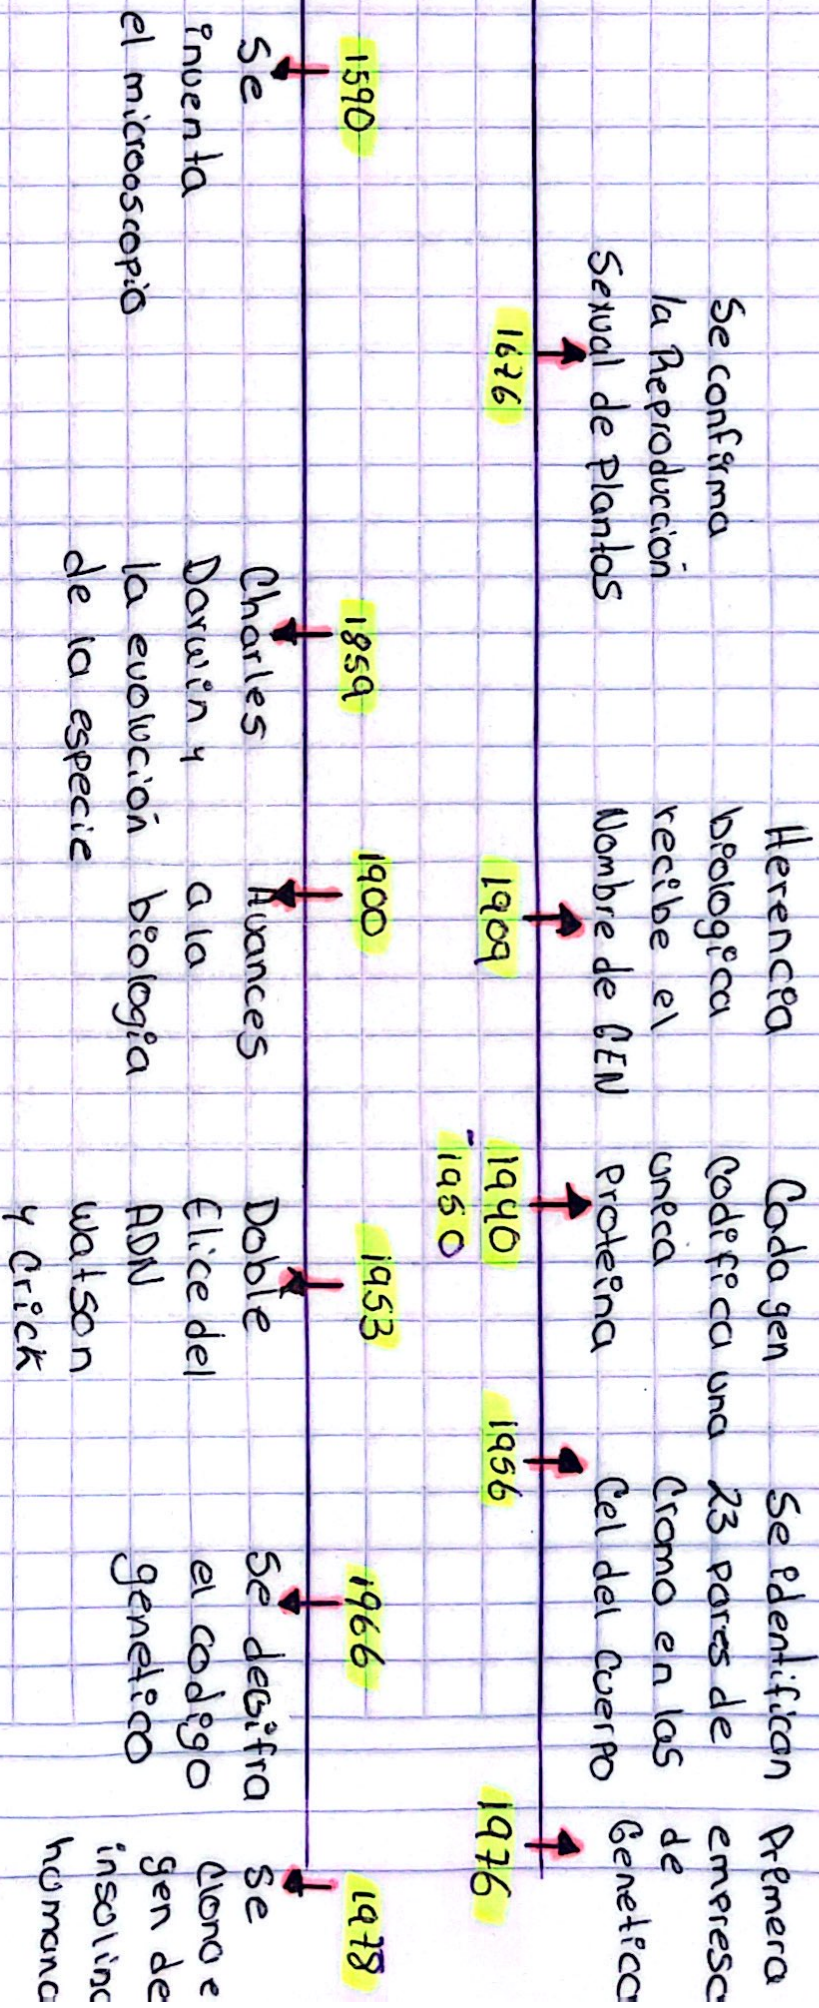 1590
Se
inventa
el microoscopio
Se confirma
la Reproducción
Sexual de Plantas
1676
1859
Charles
Darwin y
la evolución
de la especie
1900
Avances
a la
biologia
Herencia
biologica
recibe el
Nombre de GEN
1909
Cada gen
codifica una
unica
proteina
1940
-1950
1953
Doble
Elice del
ADN
Watson
y Crick
Se identifican
23 pares de
Cromo en las
Cel del Cuerpo
1956
1966
Se desifra
el codigo
genetico
Primera
empresa
de
Genetica
1976
1978
Se
Clono e
gen de
insolina
humana